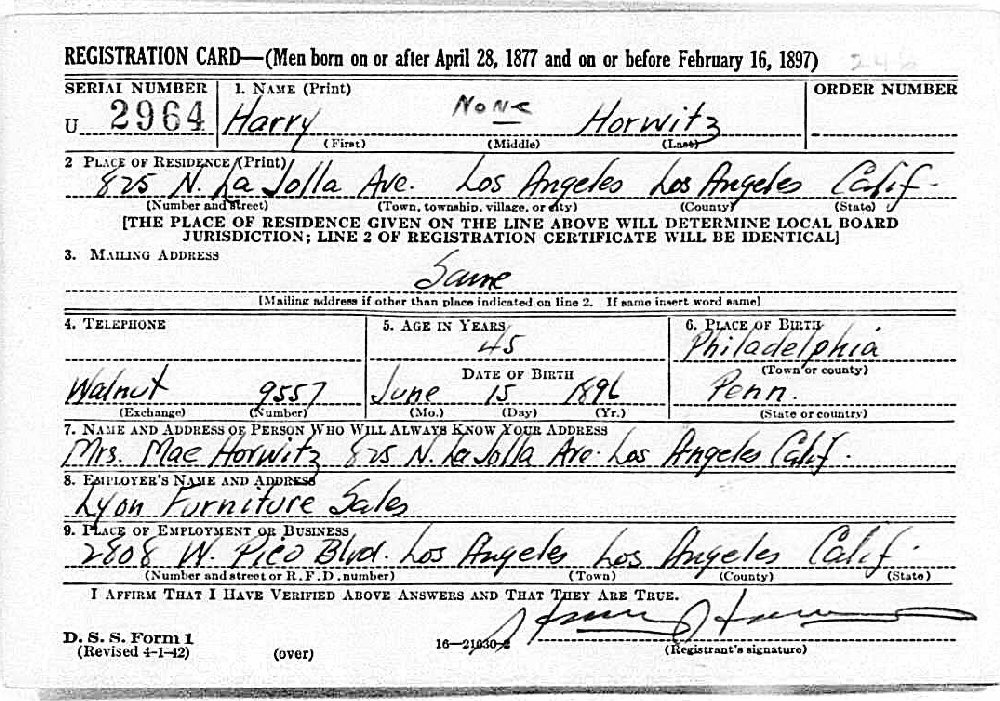 REGISTRATION CARD—(Men born on or after April 28, 1877 and on or before February 16, 1897) 246
SERIAL NUMBER 1. NAME (Print) ORDER NUMBER
U 2964 Harry None Horwitz
(First) (Middle) (Last)
2 PLACE OF RESIDENCE (Print)
825 N. La Jolla Ave. Los Angeles Los Angeles Calif.
(Number and street) (Town, township, village, or city) (County) (State)
[THE PLACE OF RESIDENCE GIVEN ON THE LINE ABOVE WILL DETERMINE LOCAL BOARD
JURISDICTION; LINE 2 OF REGISTRATION CERTIFICATE WILL BE IDENTICAL]
3. MAILING ADDRESS
Same
[Mailing address if other than place indicated on line 2. If same insert word same]
4. TELEPHONE 5. AGE IN YEARS 6. PLACE OF BIRTH
45 Philadelphia
DATE OF BIRTH (Town or county)
Walnut 9557 June 15 1896 Penn.
(Exchange) (Number) (Mo.) (Day) (Yr.) (State or country)
7. NAME AND ADDRESS OF PERSON WHO WILL ALWAYS KNOW YOUR ADDRESS
Mrs. Mae Horwitz 825 N. La Jolla Ave. Los Angeles Calif.
8. EMPLOYER'S NAME AND ADDRESS
Lyon Furniture Sales
9. PLACE OF EMPLOYMENT OR BUSINESS
2808 W. Pico Blvd. Los Angeles Los Angeles Calif.
(Number and street or R. F. D. number) (Town) (County) (State)
I AFFIRM THAT I HAVE VERIFIED ABOVE ANSWERS AND THAT THEY ARE TRUE.
D. S. S. Form 1
(Revised 4-1-42) (over) 16—21630-2 (Registrant's signature)